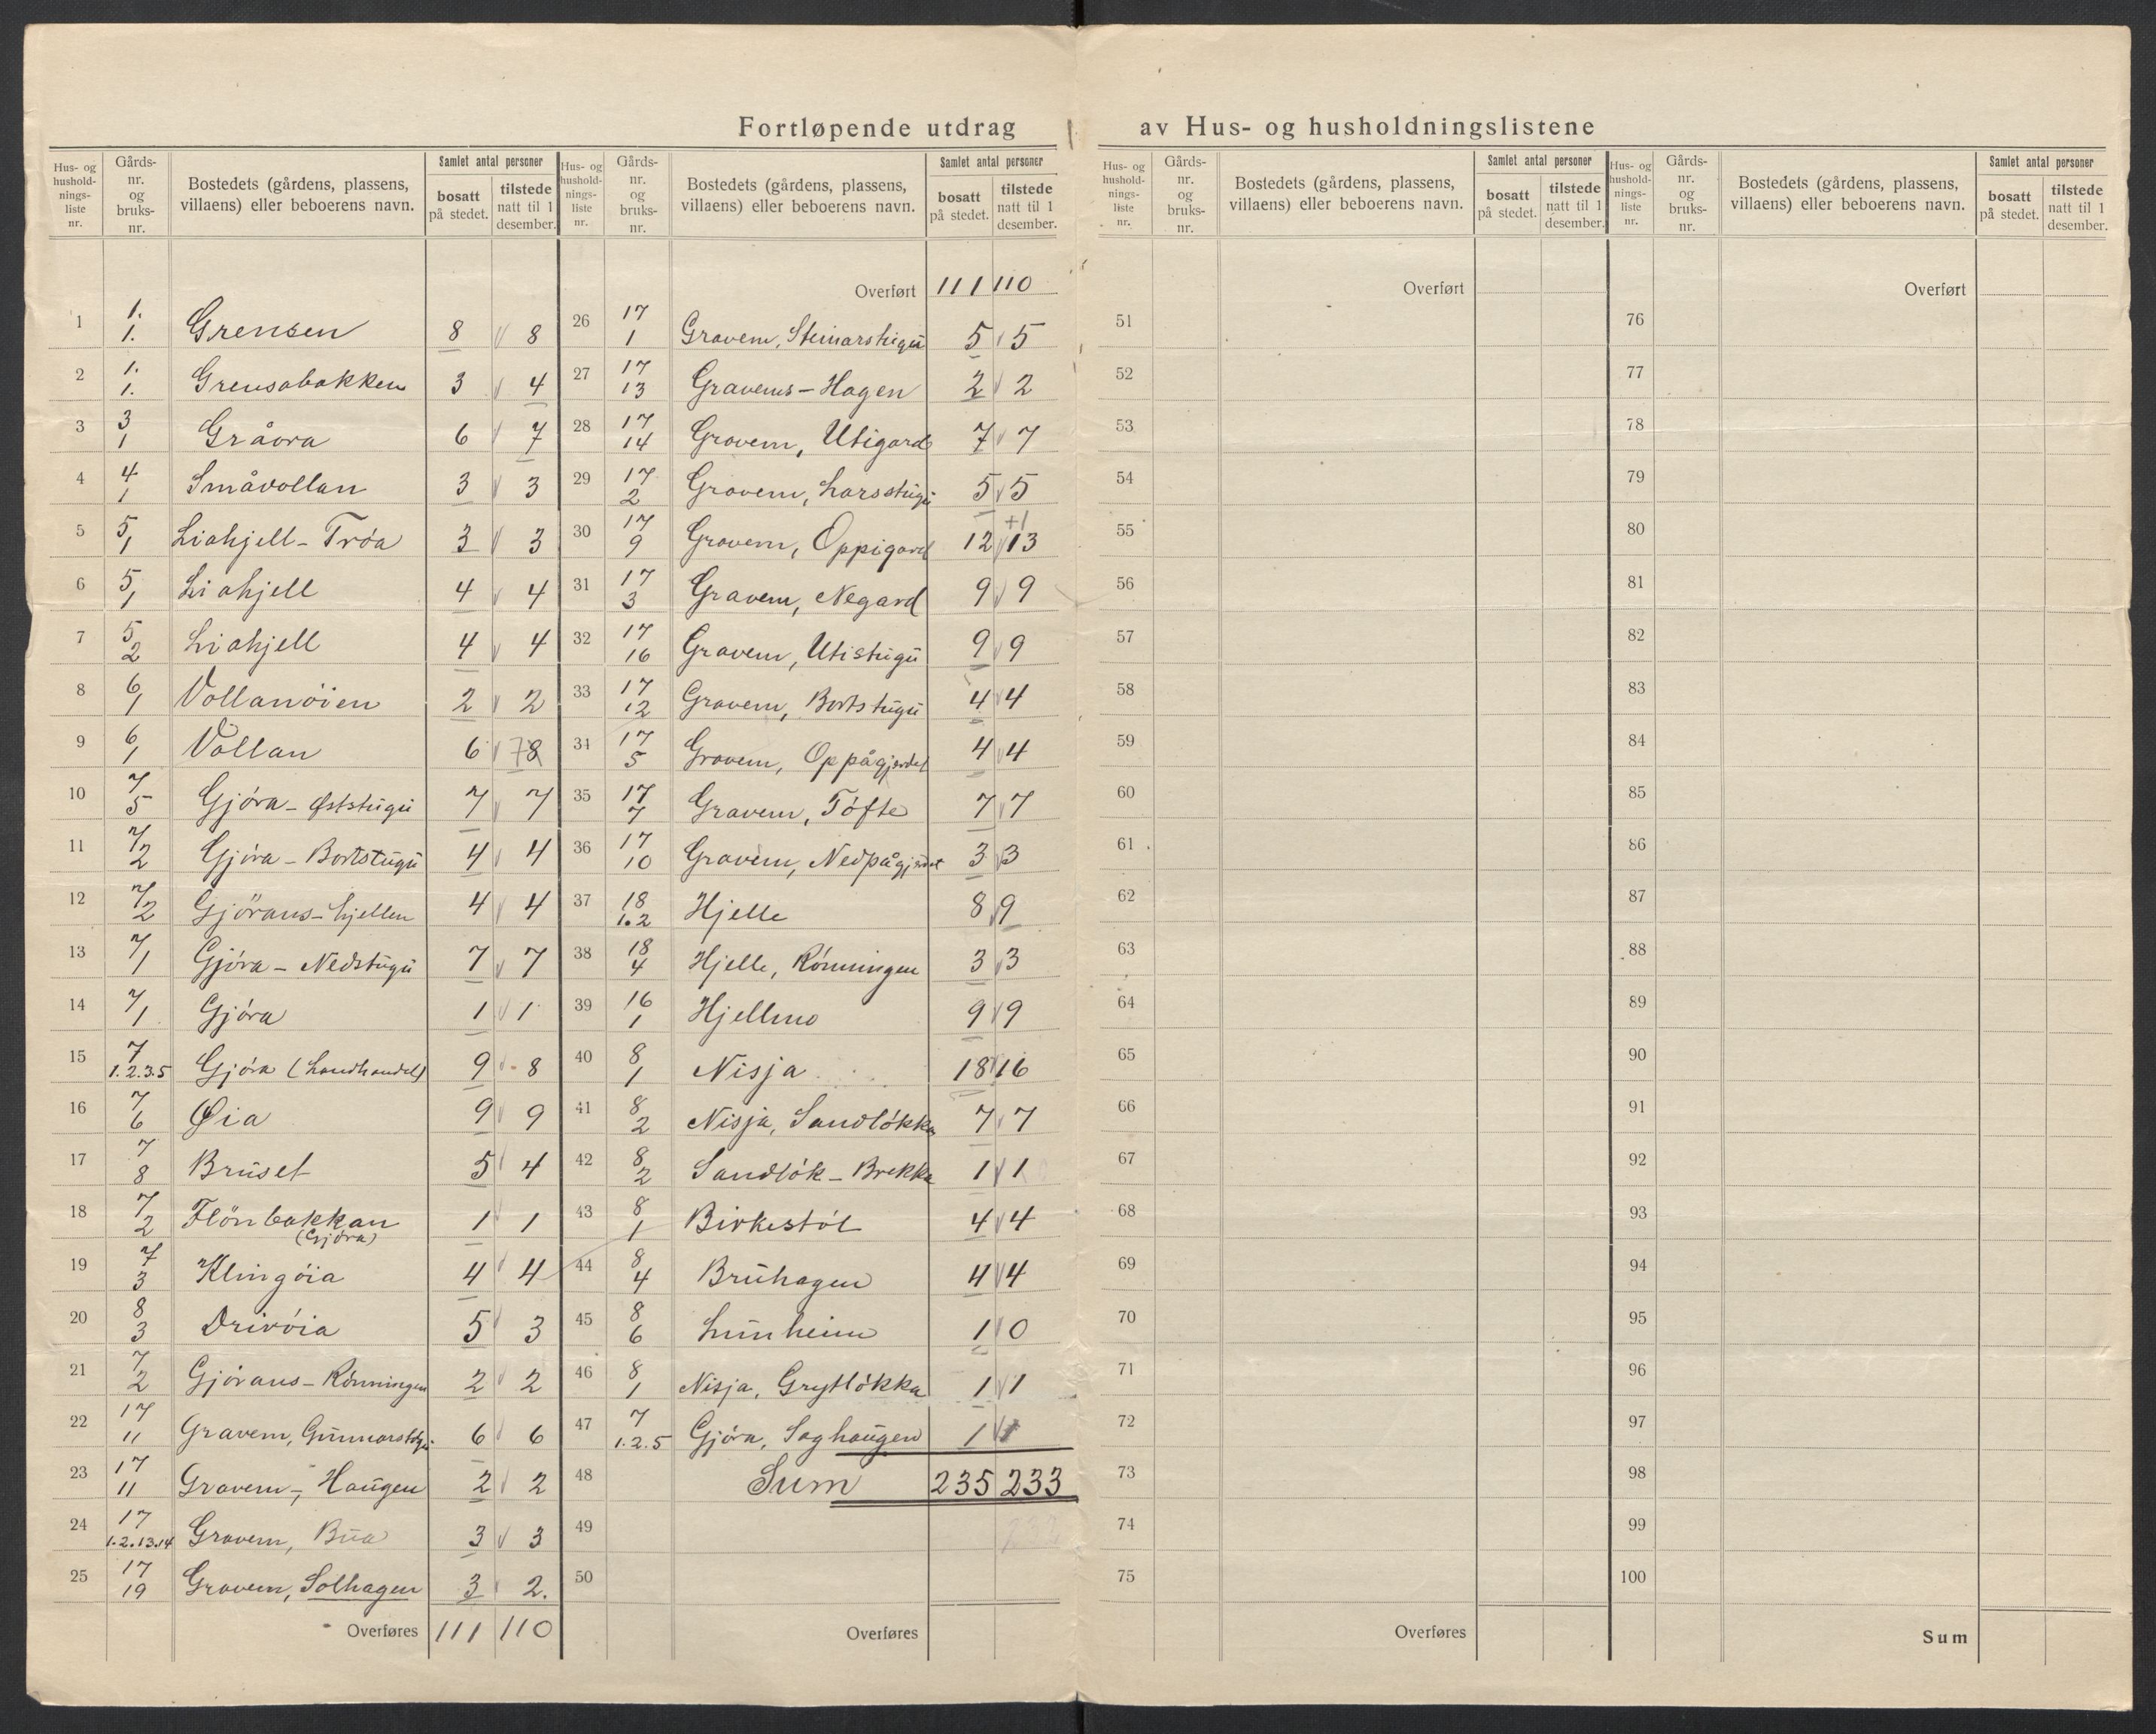 Fortløpende utdrag av Hus- og husholdningslistene
Hus- og husholdningsliste nr. | Gårdsnr. og bruksnr. | Bostedets (gårdens, plassens, villaens) eller beboerens navn. | Samlet antal personer bosatt på stedet. | tilstede natt til 1 desember.
1 | 1. 1. | Grensen | 8 | 8
2 | 1. 1. | Grensabakken | 3 | 4
3 | 3 1 | Gråora | 6 | 7
4 | 4 1 | Småvollan | 3 | 3
5 | 5 1 | Liahjell - Tróa | 3 | 3
6 | 5 1 | Liahjell | 4 | 4
7 | 5 2 | Liahjell | 4 | 4
8 | 6 1 | Vollanöien | 2 | 2
9 | 6 1 | Vollan | 6 | 78
10 | 7 5 | Gjóra - Øststugu | 7 | 7
11 | 7 2 | Gjóra - Bortstugu | 4 | 4
12 | 7 2 | Gjörans-hjellen | 4 | 4
13 | 7 1 | Gjóra - Nedstugu | 7 | 7
14 | 7 1 | Gjóra | 1 | 1
15 | 7 1.2.3.5 | Gjóra (Landhandel) | 9 | 8
16 | 7 6 | Øia | 9 | 9
17 | 7 8 | Bruset | 5 | 4
18 | 7 2 | Flönbakkan (Gjóra) | 1 | 1
19 | 7 3 | Klingóia | 4 | 4
20 | 8 3 | Drivóia | 5 | 3
21 | 7 2 | Gjórans - Rónningen | 2 | 2
22 | 17 11 | Gravem, Gunnarstugu | 6 | 6
23 | 17 11 | Gravem-, Haugen | 2 | 2
24 | 17 1.2.13.14 | Gravem, Bua | 3 | 3
25 | 17 19 | Gravem, Solhagen | 3 | 2.
Overføres | 111 | 110
Hus- og husholdningsliste nr. | Gårdsnr. og bruksnr. | Bostedets (gårdens, plassens, villaens) eller beboerens navn. | Samlet antal personer bosatt på stedet. | tilstede natt til 1 desember.
Overført | 111 | 110
26 | 17 1 | Gravem, Steinarstugu | 5 | 5
27 | 17 13 | Gravems - Hagen | 2 | 2
28 | 17 14 | Gravem, Utigard | 7 | 7
29 | 17 2 | Gravem, Larsstugu | 5 | 5
30 | 17 9 | Gravem, Oppigard | 12 | +1 13
31 | 17 3 | Gravem, Negard | 9 | 9
32 | 17 16 | Gravem, Utistugu | 9 | 9
33 | 17 12 | Gravem, Bortstugu | 4 | 4
34 | 17 5 | Gravem, Oppågjerdet | 4 | 4
35 | 17 7 | Gravem, Tófte | 7 | 7
36 | 17 10 | Gravem, Nedpågjerdet | 3 | 3
37 | 18 1.2 | Hjelle | 8 | 9
38 | 18 4 | Hjelle, Rónningen | 3 | 3
39 | 16 1 | Hjellmo | 9 | 9
40 | 8 1 | Nisja | 18 | 16
41 | 8 2 | Nisja, Sandlókka | 7 | 7
42 | 8 2 | Sandlók - Brekka | 1 | 1
43 | 8 1 | Birkestól | 4 | 4
44 | 8 4 | Bruhagen | 4 | 4
45 | 8 6 | Lunheim | 1 | 0
46 | 8 1 | Nisja, Grytlókka | 1 | 1
47 | 7 1.2.5 | Gjóra, Saghaugen | 1 | 1
48 | Sum | 235 | 233
49
50
Overføres
Hus- og husholdningsliste nr. | Gårdsnr. og bruksnr. | Bostedets (gårdens, plassens, villaens) eller beboerens navn. | Samlet antal personer bosatt på stedet. | tilstede natt til 1 desember.
Overført
51
52
53
54
55
56
57
58
59
60
61
62
63
64
65
66
67
68
69
70
71
72
73
74
75
Overføres
Hus- og husholdningsliste nr. | Gårdsnr. og bruksnr. | Bostedets (gårdens, plassens, villaens) eller beboerens navn. | Samlet antal personer bosatt på stedet. | tilstede natt til 1 desember.
Overført
76
77
78
79
80
81
82
83
84
85
86
87
88
89
90
91
92
93
94
95
96
97
98
99
100
Sum